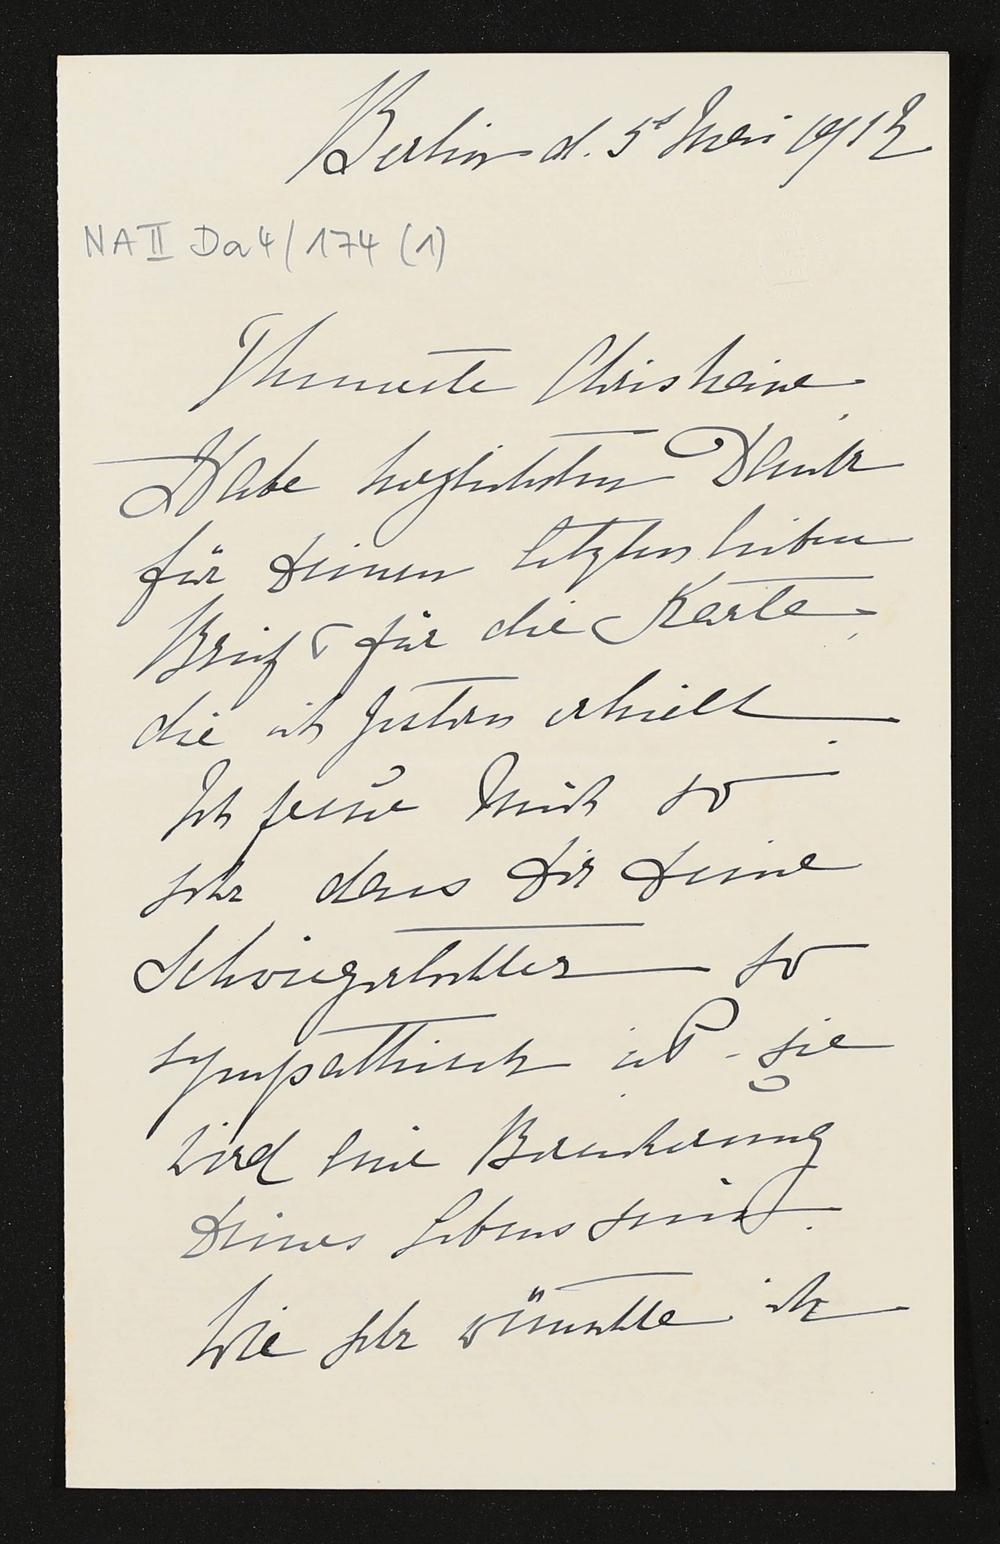 Berlin d. 5t Mai 1912
NA II Da 4/174 (1)
Theuerste Christiane,
Habe herzlichsten Dank
für Deinen letzten lieben
Brief & für die Karte,
die ich gestern erhielt.
Ich freue mich so
sehr dass Dir Deine
Schwiegertochter so
sympathisch ist - sie
wird eine Bereicherung
Deines Lebens sein.
Wie sehr wünschte ich